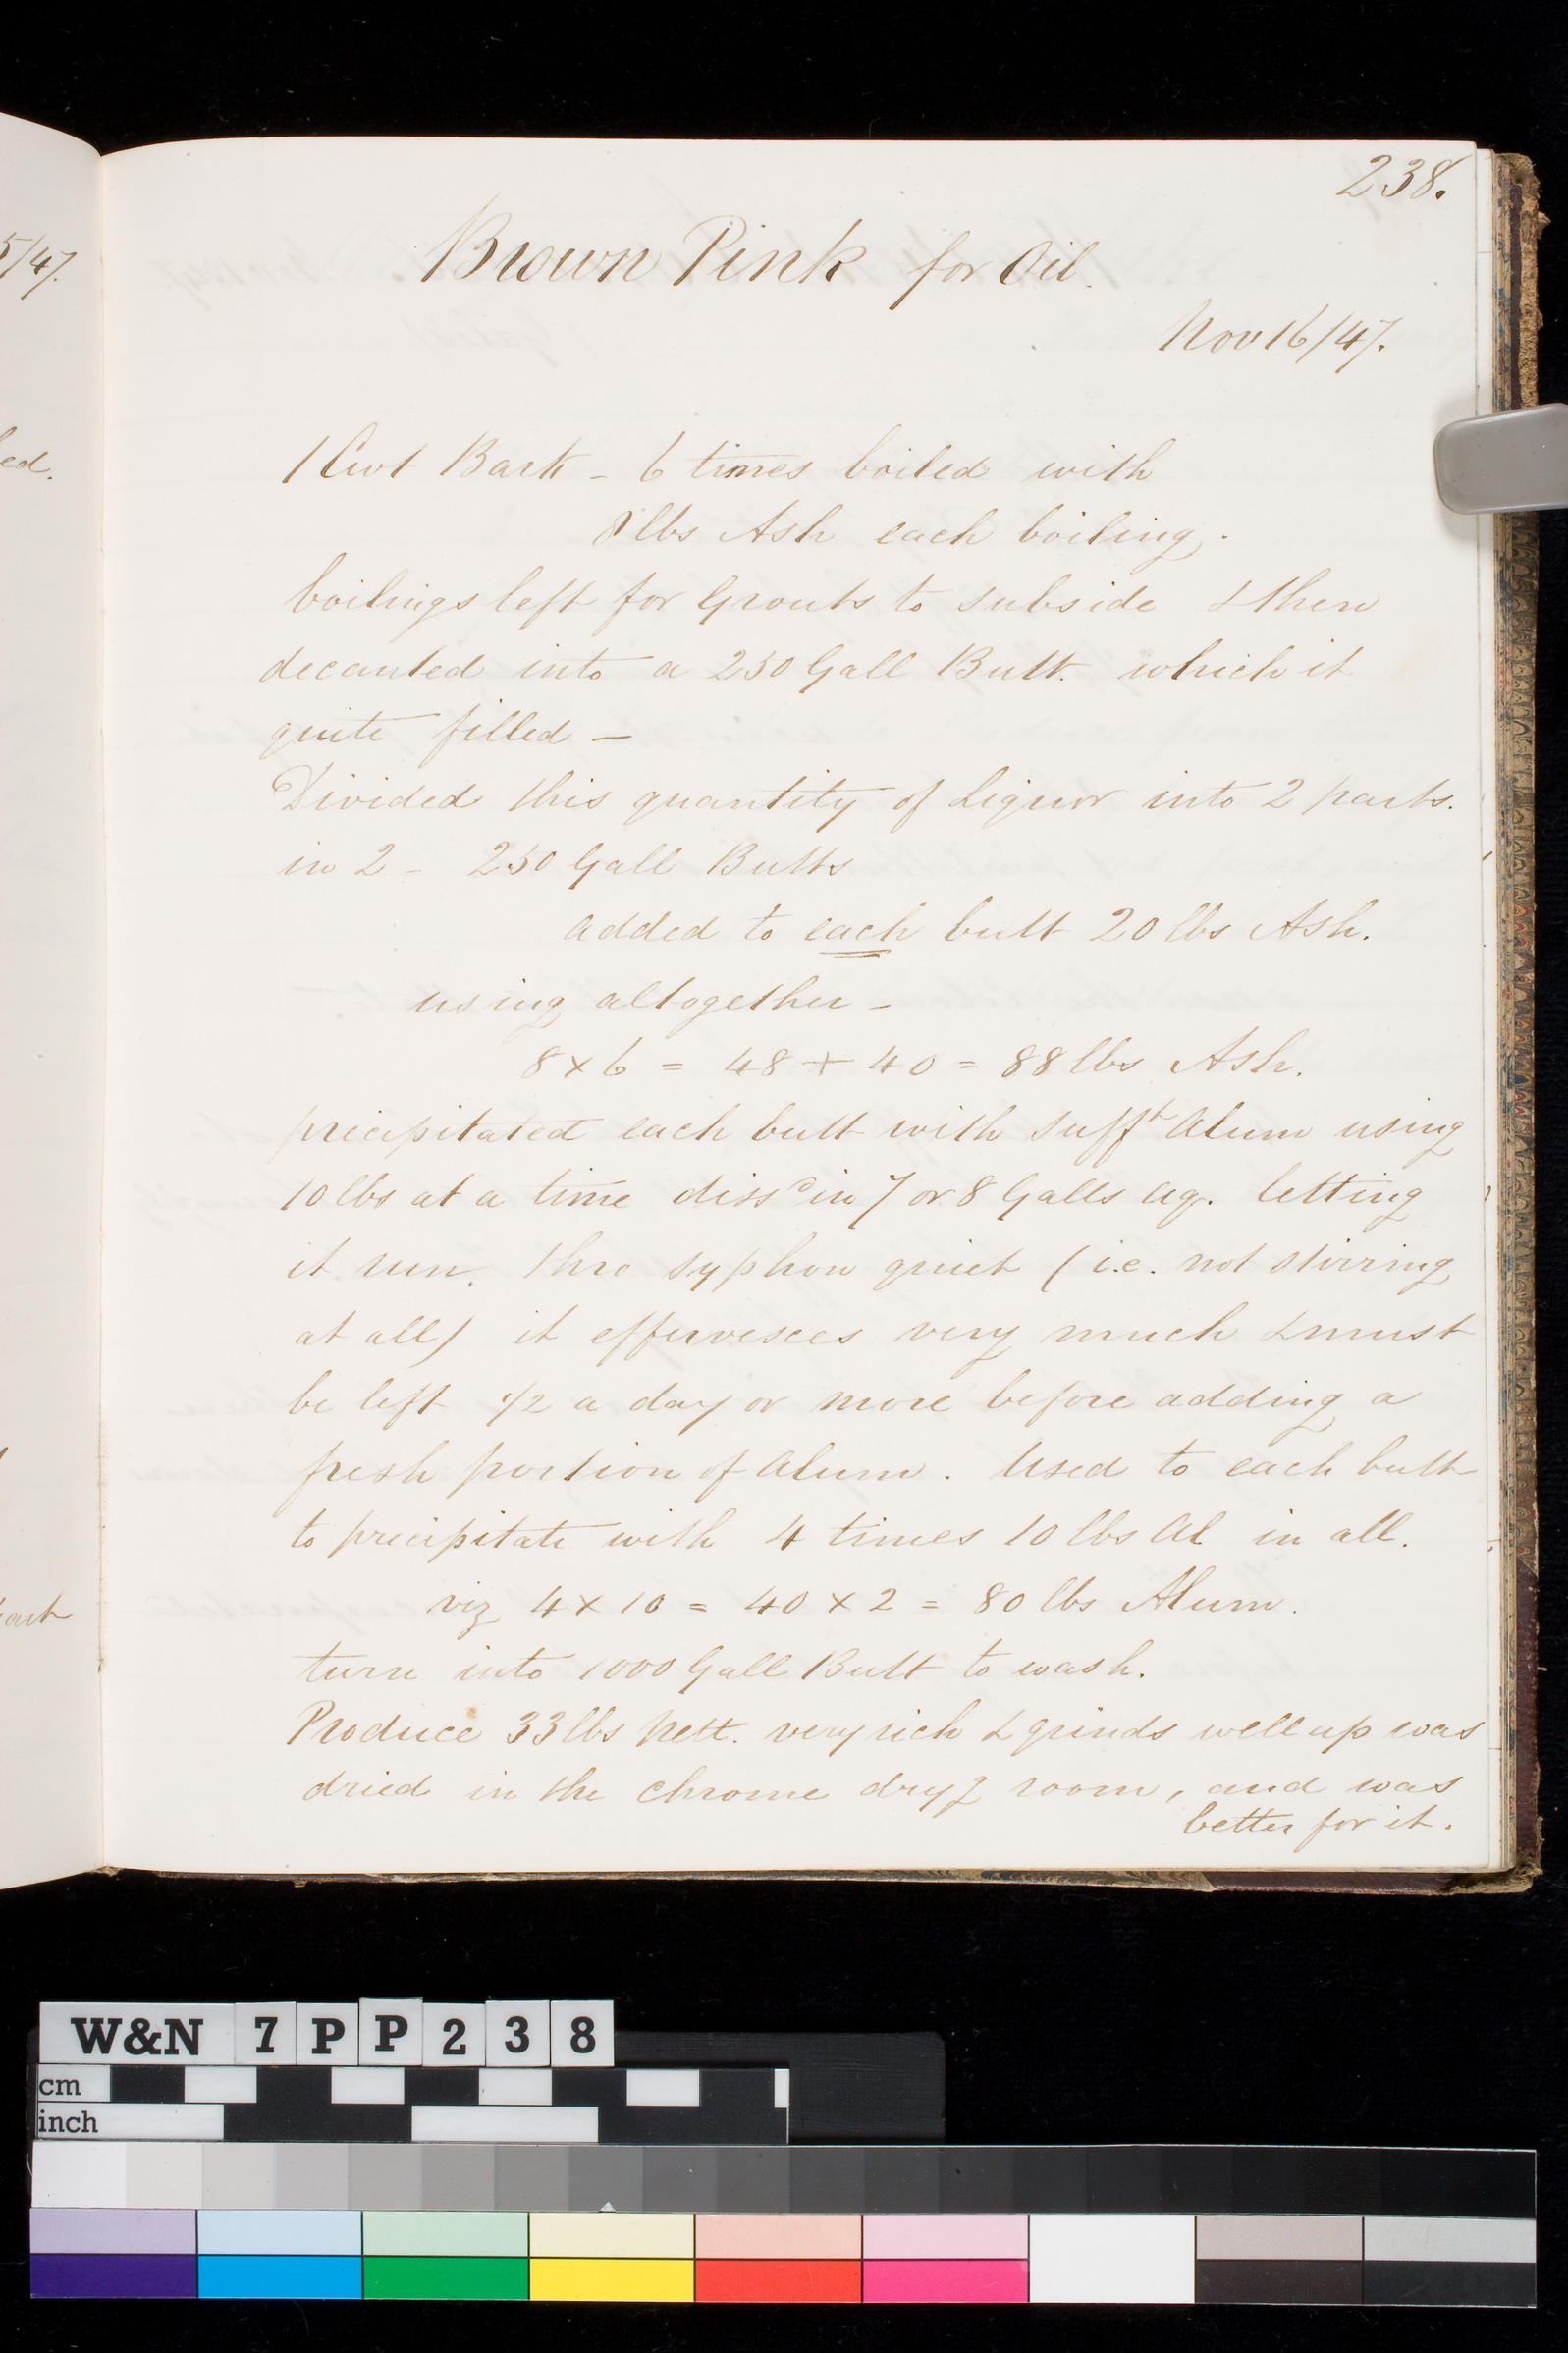 238.
Brown Pink for Oil.
Nov 16/47.
1 Cwt Bark - 6 times boiled with
8 lbs Ash each boiling.
boilings left for Grouts to subside & then
decanted into a 250 Gall Butt. which it
quite filled —
Divided this quantity of Liquor into 2 parts.
in 2 - 250 Gall Butts
added to each butt 20 lbs Ash.
using altogether -
8 x 6 = 48 + 40 = 88 lbs Ash.
precipitated each butt with Sufft Alum using
10 lbs at a time dissd in 7 or 8 Galls aq. letting
it run. thro syphon quiet (i.e. not stirring
at all) it effervesces very much & must
be left 1/2 a day or more before adding a
fresh portion of Alum. Used to each butt
to precipitate with 4 times 10 lbs Al in all.
viz 4 x 10 = 40 x 2 = 80 lbs Alum.
turn into 1000 Gall Butt to wash.
Produce 33 lbs Nett. very rich & grinds well up was
dried in the Chrome dryg room, and was
better for it.
5/47.
ed.
W&N 7PP238
cm
inch